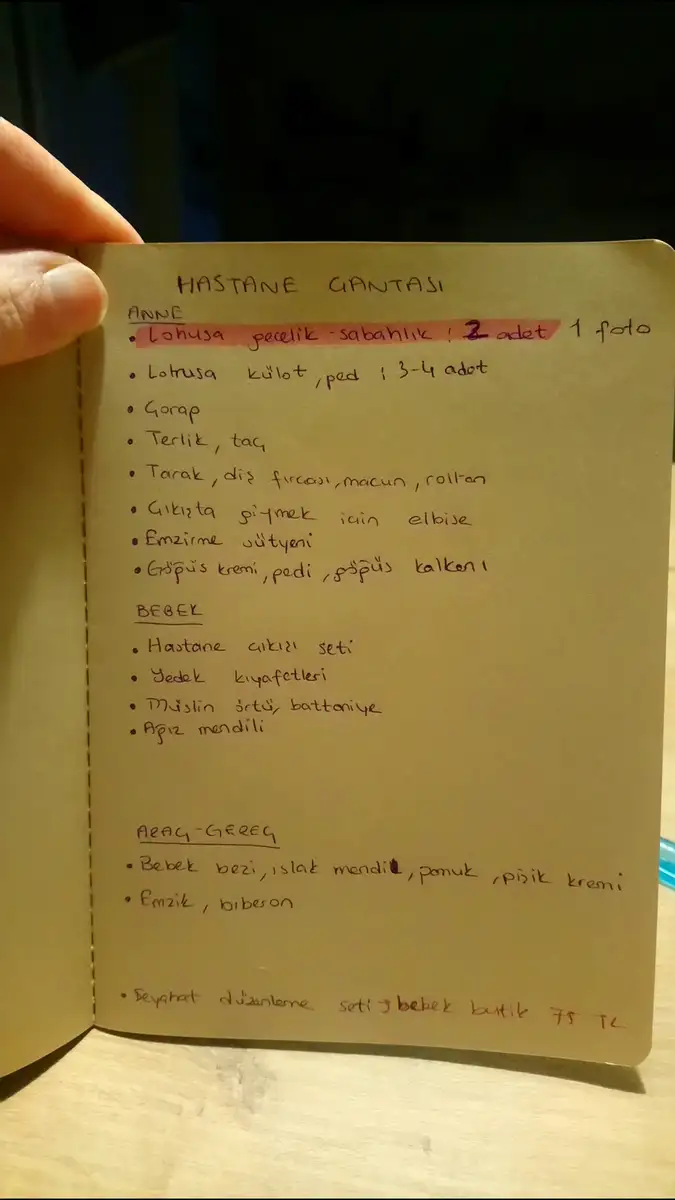 HASTANE ÇANTASI
ANNE
• Lohusa gecelik-sabahlık : 2 adet 1 foto
• Lohusa külot, ped : 3-4 adet
• Çorap
• Terlik, taç
• Tarak, diş fırçası, macun, rollon
• Çıkışta giymek için elbise
• Emzirme sütyeni
• Göğüs kremi, pedi, göğüs kalkanı
BEBEK
• Hastane çıkışı seti
• Yedek kıyafetleri
• Müslin örtü, battaniye
• Ağız mendili
ARAÇ-GEREÇ
• Bebek bezi, ıslak mendil, pamuk, pişik kremi
• Emzik, biberon
• Seyahat düzenleme seti bebek butik 75 TL